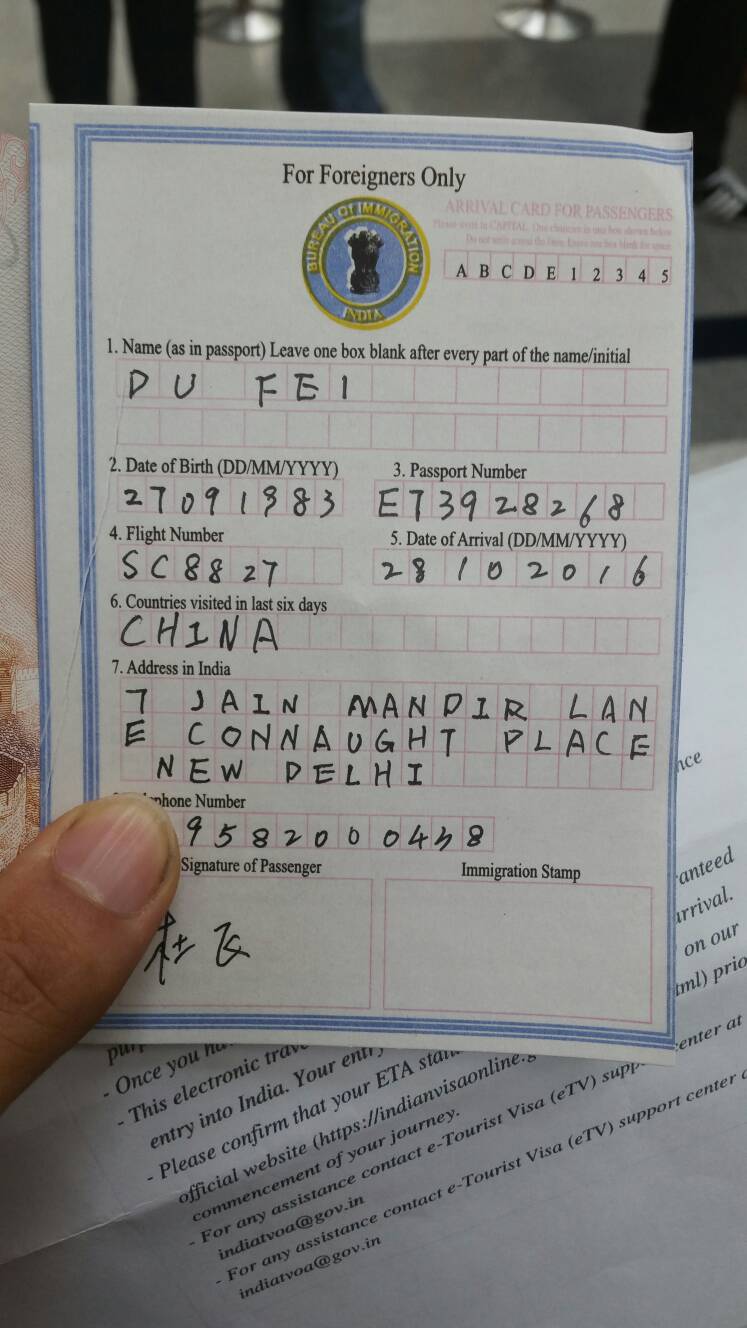 For Foreigners Only
BUREAU OF IMMIGRATION
INDIA
ARRIVAL CARD FOR PASSENGERS
A B C D E 1 2 3 4 5
1. Name (as in passport) Leave one box blank after every part of the name/initial
DU FEI
2. Date of Birth (DD/MM/YYYY) 3. Passport Number
27091983 E73928268
4. Flight Number 5. Date of Arrival (DD/MM/YYYY)
SC8827 28102016
6. Countries visited in last six days
CHINA
7. Address in India
7 JAIN MANDIR LAN
E CONNAUGHT PLACE
NEW DELHI
phone Number
9582000438
Signature of Passenger Immigration Stamp
杜飞
nce
ranteed
arrival.
on our
tml) prio
- Once you
- This electronic
entry into India. Your entry
- Please confirm that your ETA
official website (https://indianvisaonline.g
commencement of your journey.
- For any assistance contact e-Tourist Visa (eTV) supp center at
indiatvoa@gov.in
- For any assistance contact e-Tourist Visa (eTV) support center
indiatvoa@gov.in